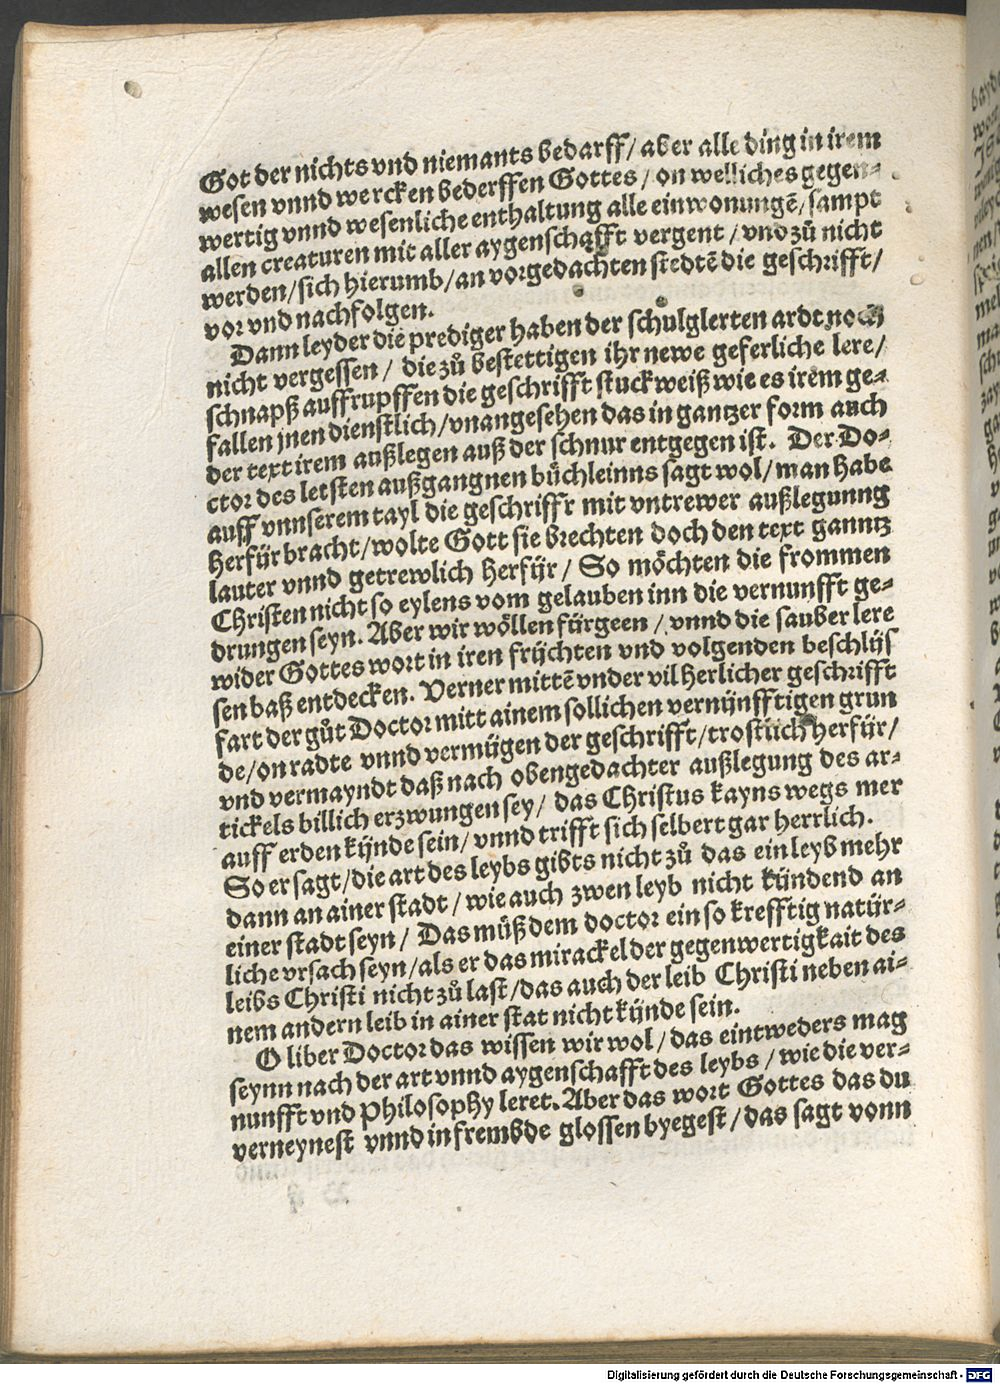 Got der nichts vnd niemants bedarff/ aber alle ding in irem
wesen vnnd wercken bederffen Gottes/ on welliches gegen⸗
wertig vnnd wesenliche enthaltung alle einwonungẽ/ sampt
allen creaturen mit aller aygenschafft vergent/ vnd zů nicht
werden/ sich hierumb/ an vorgedachten stedtẽ die geschrifft/
vor vnd nachfolgen.
Dann leyder die prediger haben der schulglerten ardt noch
nicht vergessen/ die zů bestettigen ihr newe geferliche lere/
schnapß auffrupffen die geschrifft stuckweiß wie es irem ge⸗
fallen jnen dienstlich/ vnangesehen das in gantzer form auch
der text irem außlegen auß der schnur entgegen ist. Der Do⸗
ctor des letsten außgangnen büchleinns sagt wol/ man habe
auff vnnserem tayl die geschriffr mit vntrewer außlegunng
herfür bracht/ wolte Gott sie brechten doch den text ganntz
lauter vnnd getrewlich herfür/ So möchten die frommen
Christen nicht so eylens vom gelauben inn die vernunfft ge⸗
drungen seyn. Aber wir wöllen fürgeen/ vnnd die sauber lere
wider Gottes wort in iren früchten vnd volgenden beschlüs
sen baß entdecken. Verner mittẽ vnder vil herlicher geschrifft
fart der gůt Doctor mitt ainem sollichen vernünfftigen grun
de/ on radte vnnd vermügen der geschrifft/ trostlich herfür/
vnd vermayndt daß nach obengedachter außlegung des ar⸗
tickels billich erzwungen sey/ das Christus kayns wegs mer
auff erden künde sein/ vnnd trifft sich selbert gar herrlich.
So er sagt/ die art des leybs gibts nicht zů das ein leyb mehr
dann an ainer stadt/ wie auch zwen leyb nicht kündend an
einer stadt seyn/ Das müß dem doctor ein so krefftig natür⸗
liche vrsach seyn/ als er das mirackel der gegenwertigkait des
leibs Christi nicht zů last/ das auch der leib Christi neben ai⸗
nem andern leib in ainer stat nicht künde sein.
O liber Doctor das wissen wir wol/ das eintweders mag
seynn nach der art vnnd aygenschafft des leybs/ wie die ver⸗
nunfft vnd Philosophy leret. Aber das wort Gottes das du
verneynest vnnd in frembde glossen byegest/ das sagt vonn
Digitalisierung gefördert durch die Deutsche Forschungsgemeinschaft - DFG